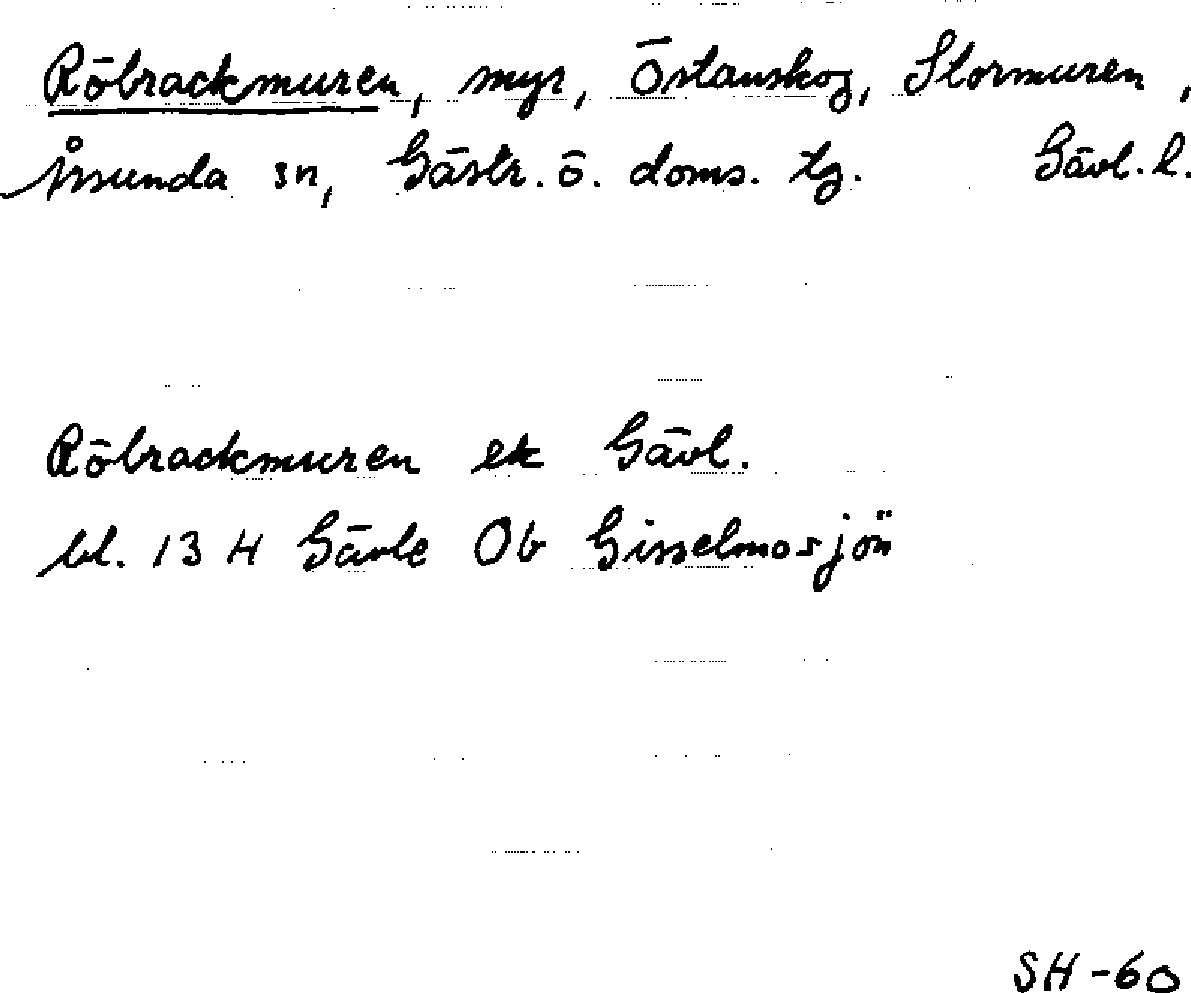 Röbrackmuren, myr, Östanskog, Stormuren,
Årsunda sn, Gästr. ö. doms. tg. Gävl. l.
Röbrackmuren ek Gävl.
bl. 13 H Gävle Ob Gisselmosjön
SH-60